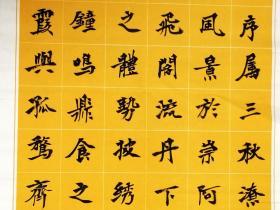 序属三秋潦
風景於崇阿
飛閣流丹下
之體勢披绣
鐘鳴鼎食之
霞與孤鶩齊